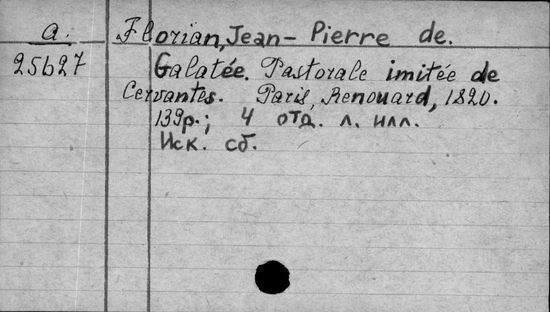 a.
25627
Florian, Jean-Pierre de.
Galatée. Pastorale imitée de
Cervantes. Paris, Renouard, 1820.
139p.; 4 отд. л. илл.
Иск. сб.